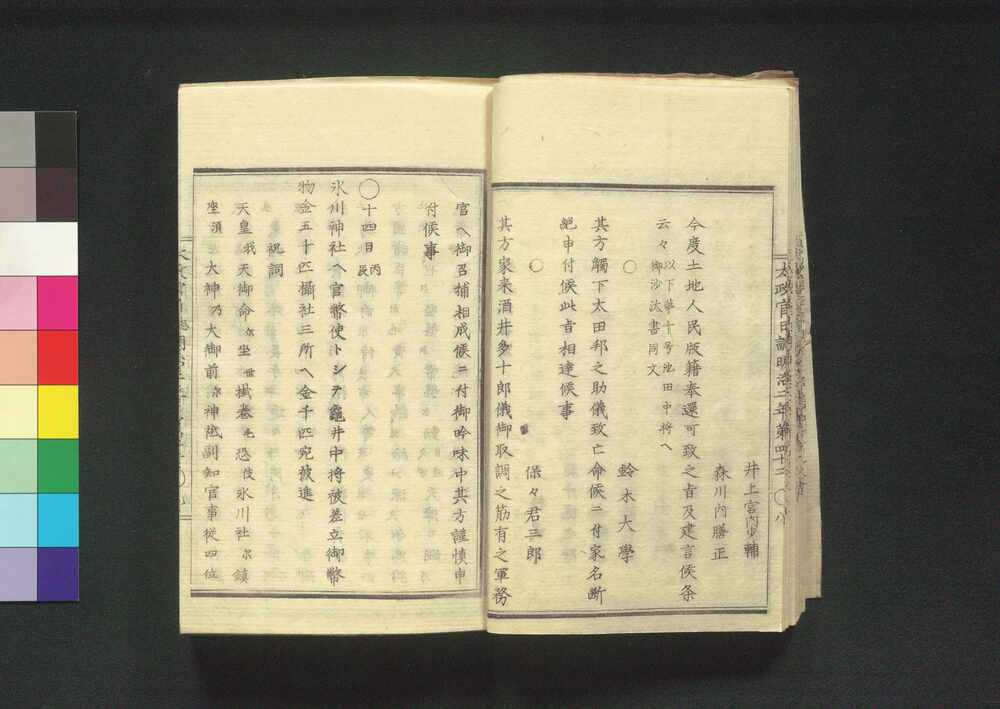 太政官日誌明治二年第四十二 〇八
井上宮内少輔
森川内膳正
今度土地人民版籍奉還可致之旨及建言候条
云々以下第十号池田中将ヘ御沙汰書同文
〇
鈴木大學
其方觸下太田邦之助儀致亡命候ニ付家名断
絶申付候此旨相達候事
〇
保々君三郎
其方家来酒井多十郎儀御取調之筋有之軍務
官ヘ御召捕相成候ニ付御吟味中其方謹慎申
付候事
〇十四日丙辰
氷川神社ヘ官幣使トシテ龜井中将被差立御幣
物金五十匹攝社三所ヘ金千匹宛被進
祝詞
天皇我天御命尓坐世掛巻毛恐伎氷川社尓鎮
坐須大神乃大御前尓神祇副知官事従四位